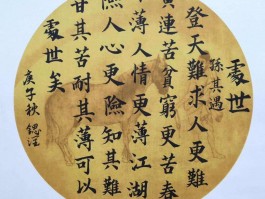 處世
孫其遇
登天難求人更難
黃連苦貧窮更苦春
冰薄人情更薄江湖
險人心更險知其難
甘其苦耐其薄可以
處世矣
庚子秋